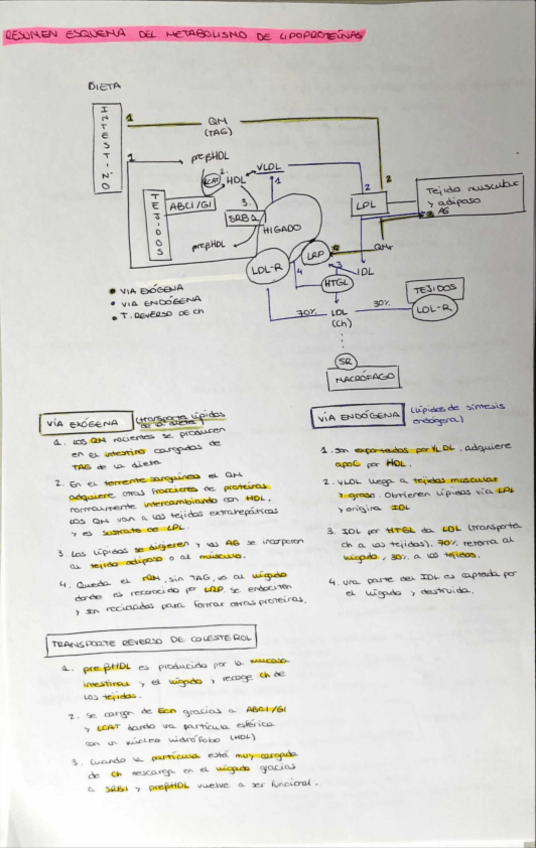 RESUMEN ESQUEMA DEL METABOLISMO DE LIPOPROTEÍNAS
DIETA
INTESTINO
1
QM
(TAG)
2
1
preβHDL
LCAT
2.
HDL
VLDL
1
2
TEJIDOS
ABC1/G1
3.
SRB1
HÍGADO
LPL
Tejido muscular
y adiposo
AG
preβHDL
LDL-R
LRP
QMr
4
3
IDL
HTGL
• VIA EXÓGENA
• VIA ENDÓGENA
• T. REVERSO DE Ch
70%
LDL
(Ch)
30%
TEJIDOS
LDL-R
SR
MACRÓFAGO
VÍA EXÓGENA (transporta lípidos
de la dieta)
1. Los QM nacientes se producen
en el intestino cargados de
TAG de la dieta
2. En el torrente sanguíneo el QM
adquiere otras fracciones de proteínas
normalmente intercambiando con HDL.
Los QM van a los tejidos extrahepáticos
y es sustrato de LPL.
3. Los lípidos se digieren y los AG se incorporan
al tejido adiposo o al músculo.
4. Queda el rQM, sin TAG, va al hígado
donde es reconocido por LRP, se endocitan
y son reciclados para formar otras proteínas.
VÍA ENDÓGENA (Lípidos de síntesis
endógena)
1. Son exportados por VLDL, adquiere
apoC por HDL.
2. VLDL llega a tejidos muscular
y graso. Obtienen lípidos vía LPL
y origina IDL
3. IDL por HTGL da LDL (transporta
Ch a los tejidos). 70% retorna al
hígado, 30% a los tejidos.
4. Una parte del IDL es captada por
el hígado y destruida.
TRANSPORTE REVERSO DE COLESTEROL
1. preβHDL es producido por la mucosa
intestinal y el hígado y recoge Ch de
los tejidos.
2. Se cargan de Ech gracias a ABC1/G1
y LCAT dando una partícula esférica
con un núcleo hidrófobo (HDL)
3. Cuando la partícula está muy cargada
de Ch descarga en el hígado gracias
a SRB1 y preβHDL vuelve a ser funcional.